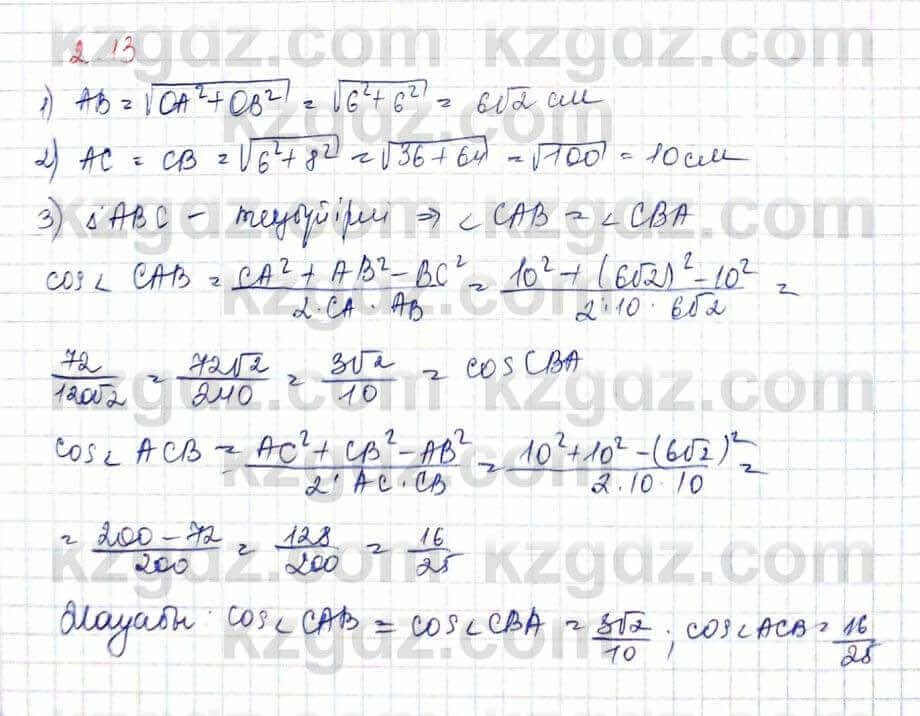 2.13
1) AB = √(OA² + OB²) = √(6² + 6²) = 6√2 см
2) AC = CB = √(6² + 8²) = √(36 + 64) = √100 = 10 см
3) △ABC – теңбүйірлі ⇒ ∠CAB = ∠CBA
cos∠CAB = (CA² + AB² − BC²)/(2·CA·AB) = (10² + (6√2)² − 10²)/(2·10·6√2) =
72/(120√2) = 72√2/240 = 3√2/10 = cos CBA
cos∠ACB = (AC² + CB² − AB²)/(2·AC·CB) = (10² + 10² − (6√2)²)/(2·10·10) =
= (200 − 72)/200 = 128/200 = 16/25
Жауабы: cos∠CAB = cos∠CBA = 3√2/10; cos∠ACB = 16/25
kzgdz.com kzgdz.com
kzgdz.com kzgdz.com
kzgdz.com kzgdz.com
kzgdz.com kzgdz.com
kzgdz.com kzgdz.com
kzgdz.com kzgdz.com
kzgdz.com kzgdz.com